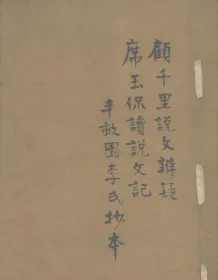 顧千里說文辨疑
席玉保讀說文記
半畝園李氏抄本